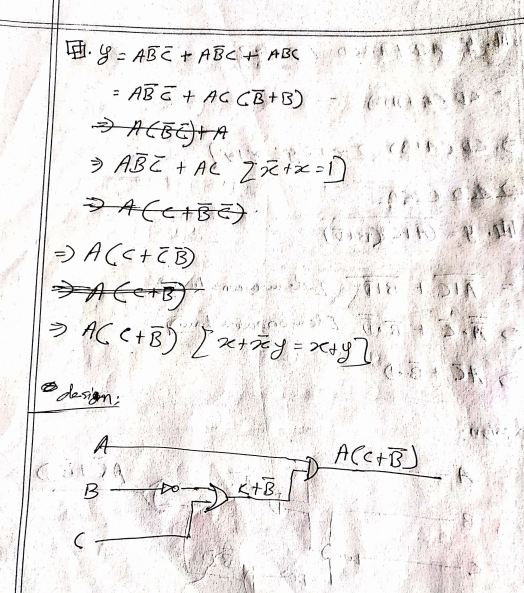 y = AB̅C̅ + AB̅C + ABC
= AB̅C̅ + AC(B̅+B)
⇒ A(B̅C̅)+A
⇒ AB̅C̅ + AC [x̅+x=1]
⇒ A(C+B̅C̅)
⇒ A(C+C̅B̅)
⇒ A(C+B̅)
⇒ A(C+B̅) [x+x̅y=x+y]
design:
A
A(C+B̅)
B
C+B̅
C